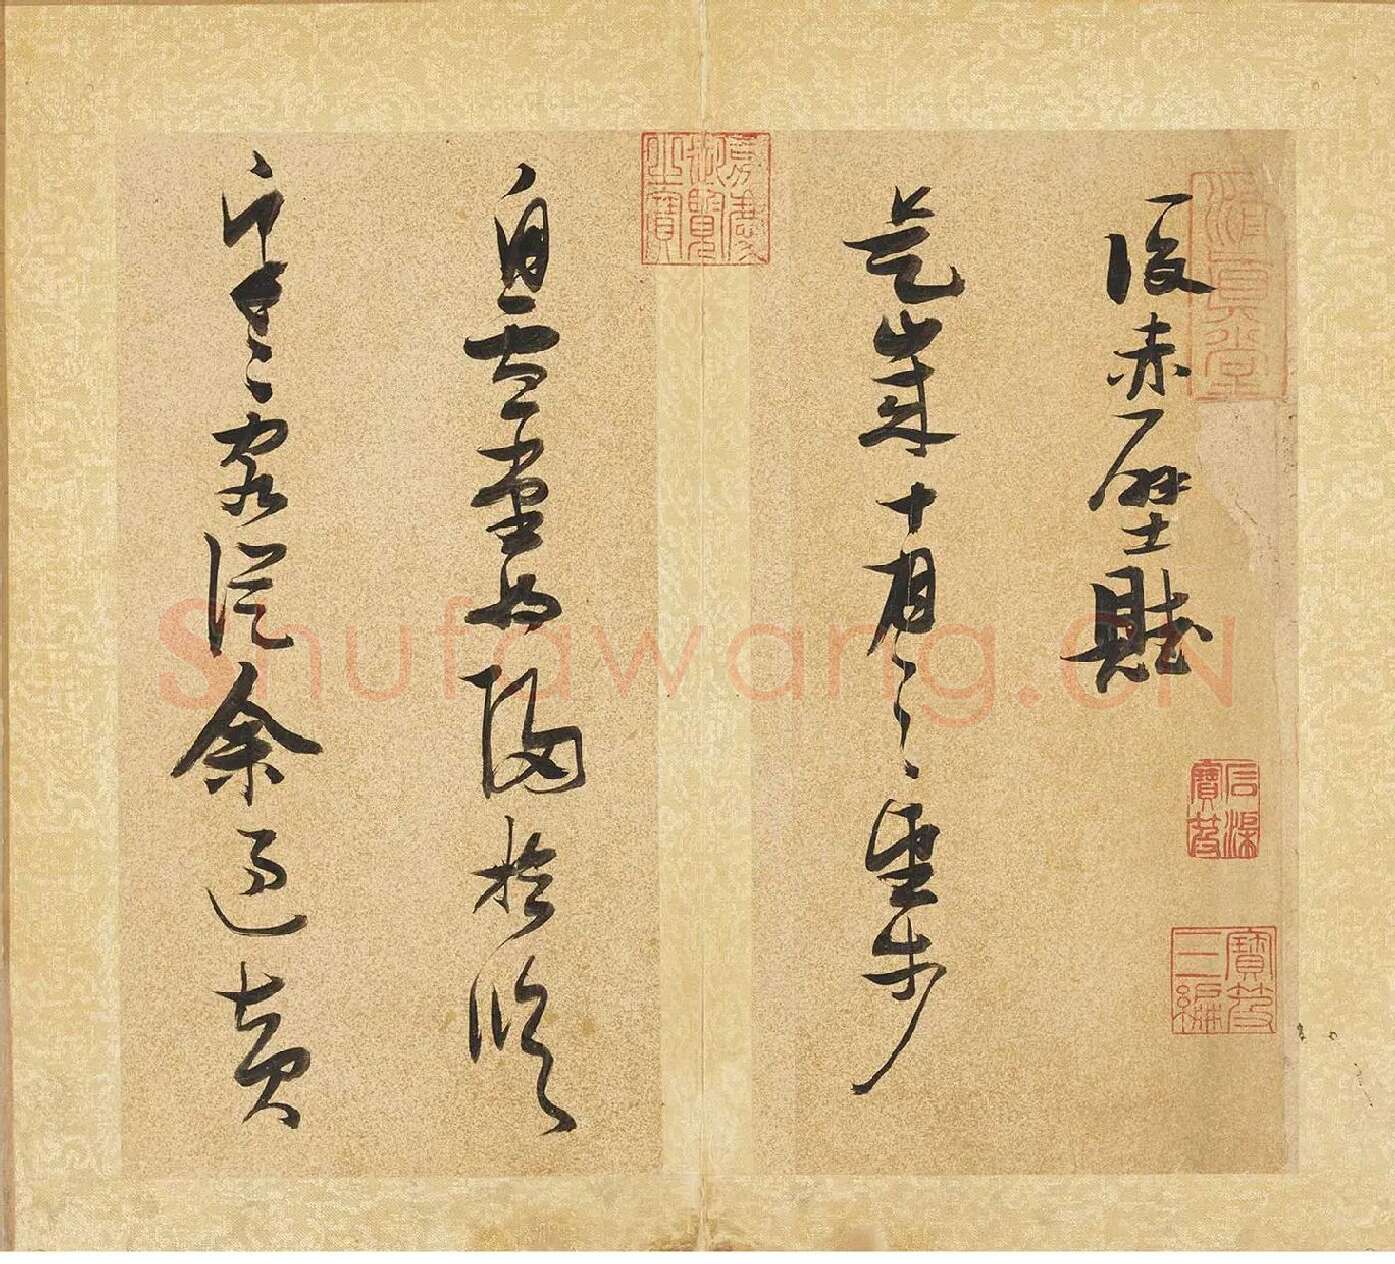 後赤壁賦
是歲十月之望步
自雪堂將歸於臨
皋二客從余過黃
嘉慶御覽之寶
石渠寶笈
寶笈三編
Shufawang.CN